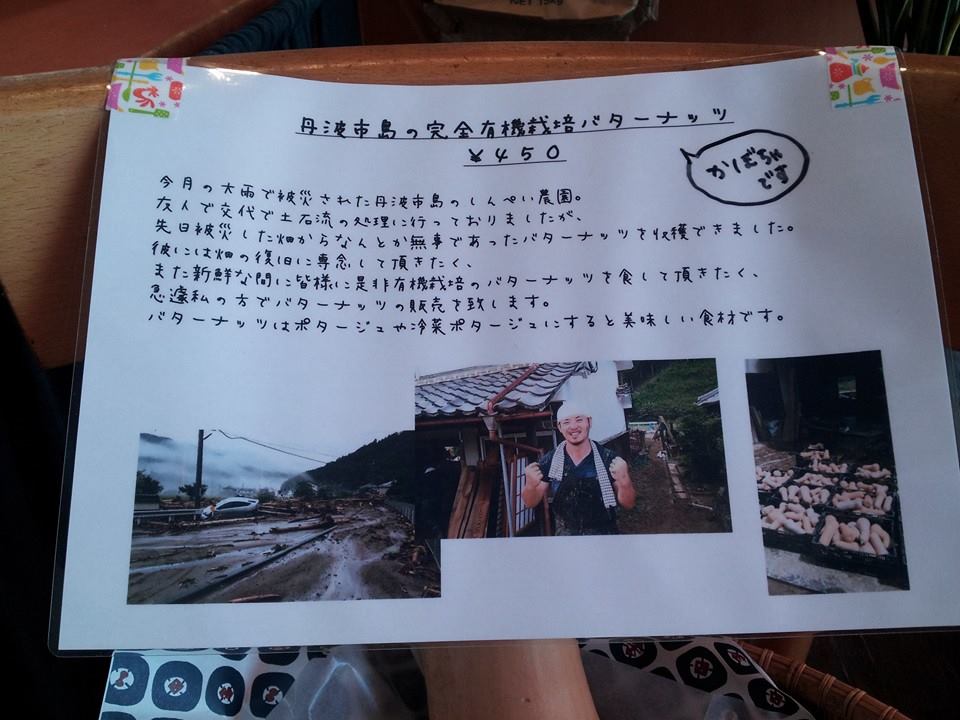 NET 15kg
丹波市島の完全有機栽培バターナッツ
¥450
かぼちゃ
です
今月の大雨で被災された丹波市島のしんぺい農園。
友人で交代で土石流の処理に行っておりましたが、
先日被災した畑からなんとか無事であったバターナッツを収穫できました。
彼には畑の復旧に専念して頂きたく、
また新鮮な間に皆様に是非有機栽培のバターナッツを食して頂きたく、
急遽私の方でバターナッツの販売を致します。
バターナッツはポタージュや冷菜ポタージュにすると美味しい食材です。